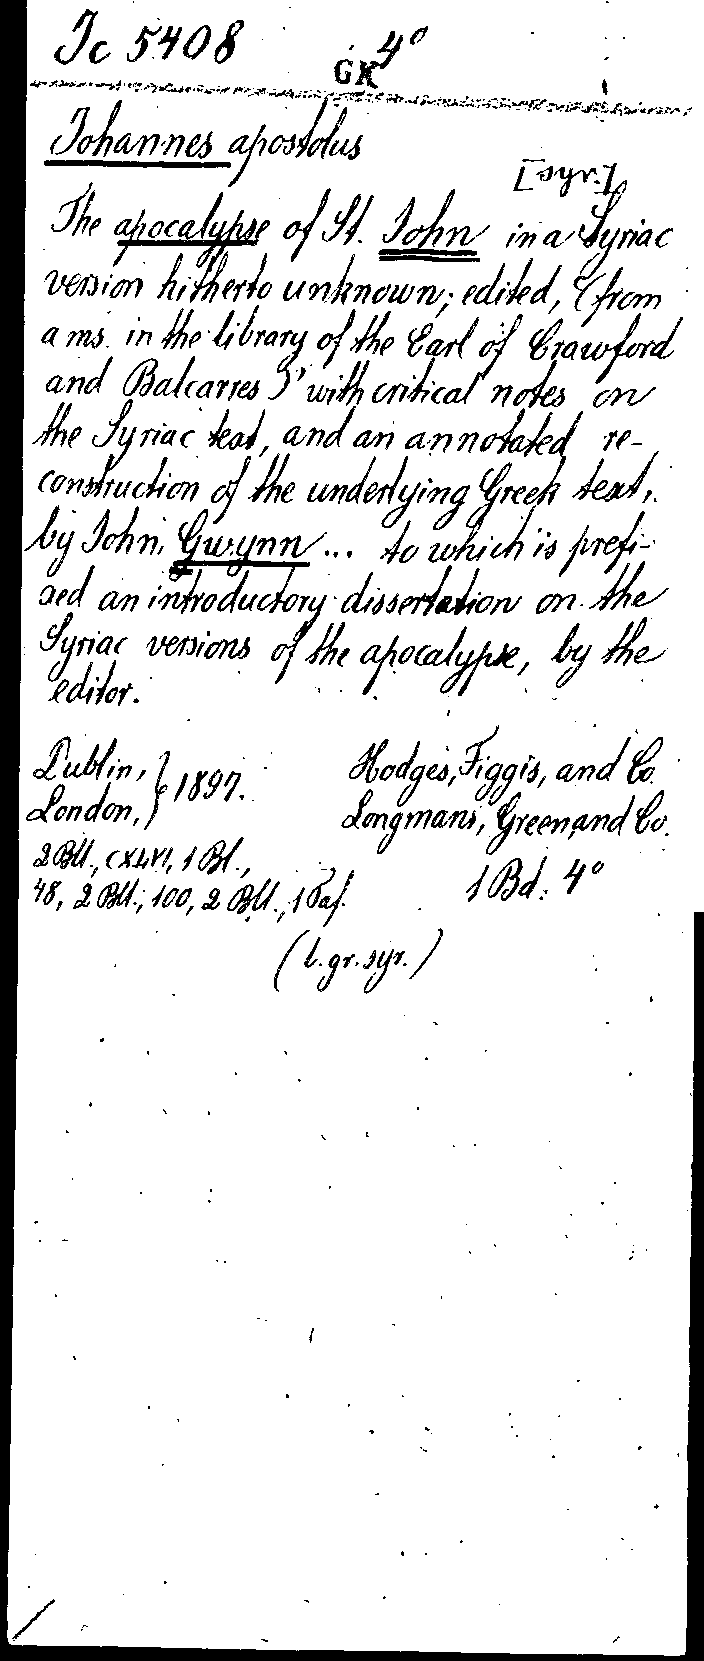 Jc 5408 4°
GK
Johannes apostolus
[syr.]
The apocalypse of St. John in a Syriac
version hitherto unknown; edited, (from
a ms. in the library of the Earl of Crawford
and Balcarres)' with critical notes on
the Syriac text, and an annotated re-
construction of the underlying Greek text,
by John Gwynn ... to which is prefi-
xed an introductory dissertation on the
Syriac versions of the apocalypse, by the
editor.
Dublin, } 1897. Hodges, Figgis, and Co.
London, } Longmans, Green, and Co.
2 Bll., CXLVI, 1 Bl.,
48, 2 Bll., 100, 2 Bll., 1 Taf. 1 Bd. 4°
(l.gr.syr.)